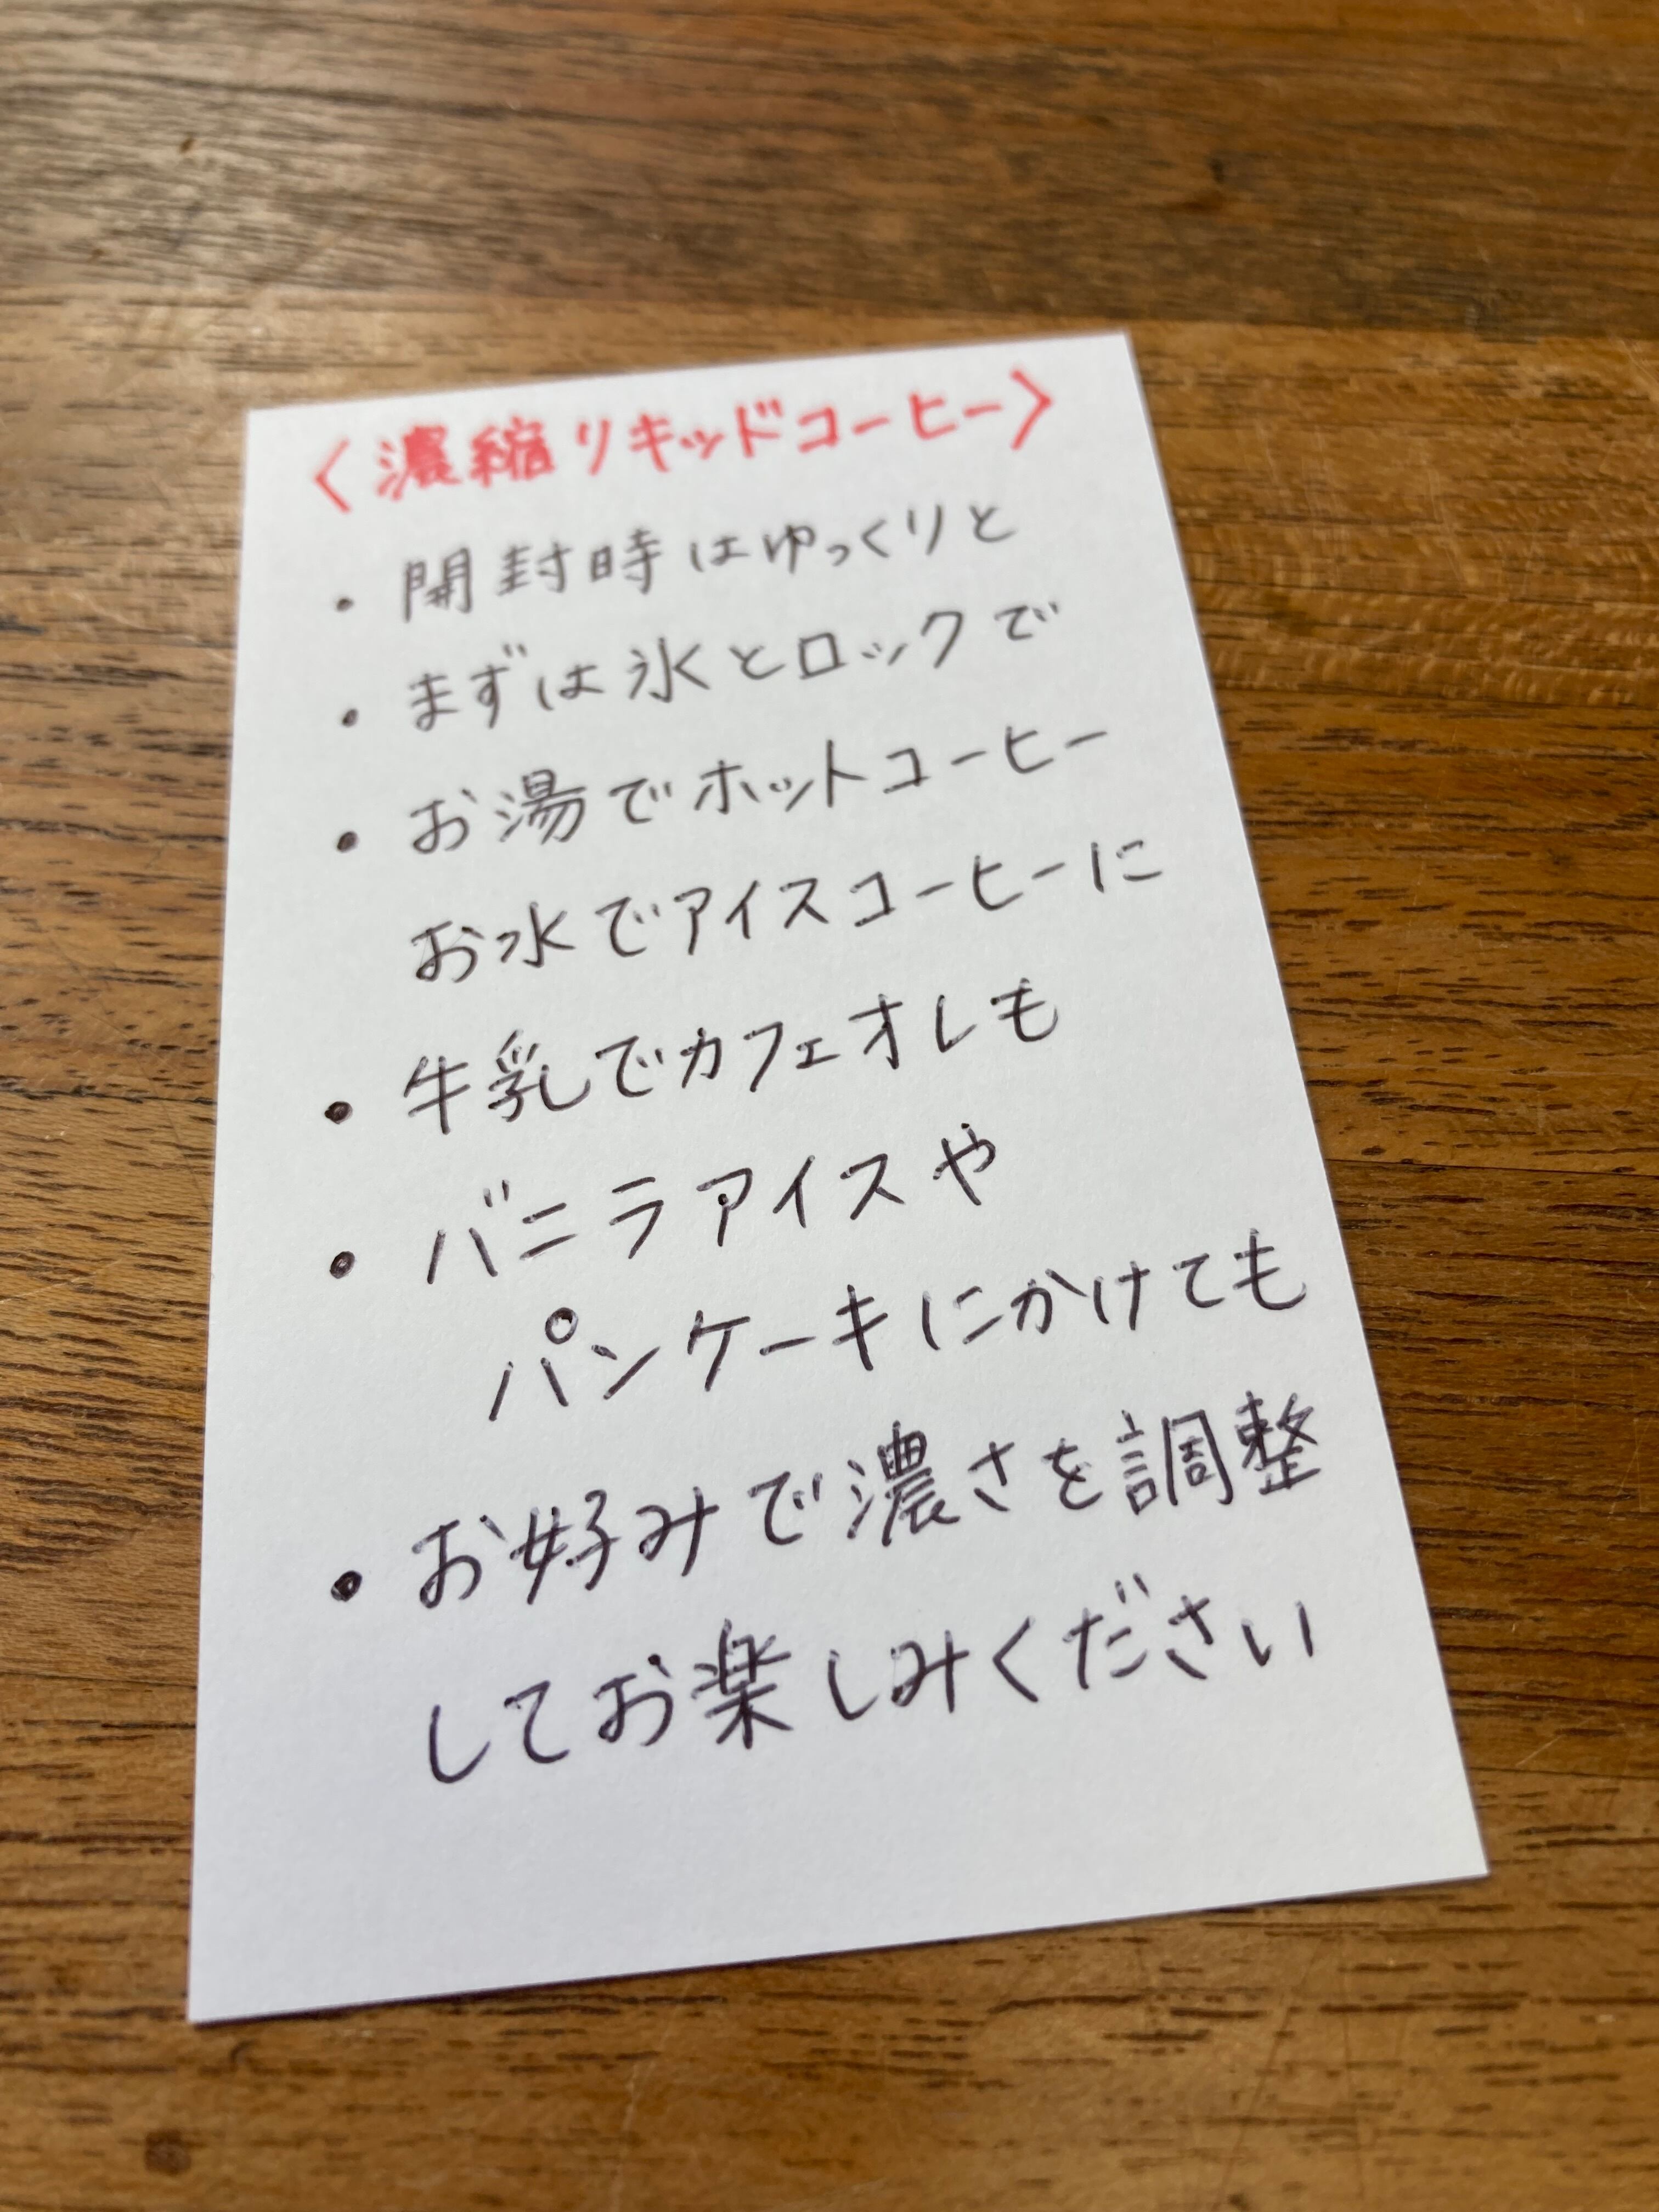 〈濃縮リキッドコーヒー〉
・開封時はゆっくりと
・まずは氷とロックで
・お湯でホットコーヒー
お水でアイスコーヒーに
・牛乳でカフェオレも
・バニラアイスや
パンケーキにかけても
・お好みで濃さを調整
してお楽しみください